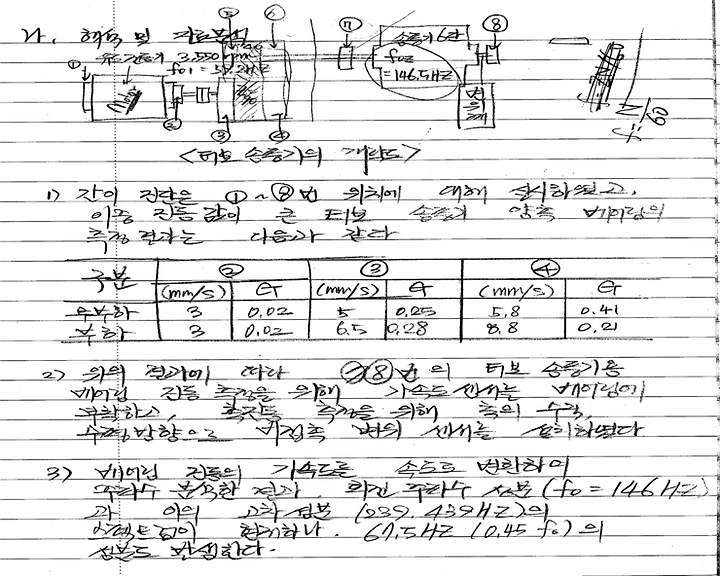 나. 해독 및 진단분석
⑤ ⑥ ⑦ ⑧
유도전동기 3,550 rpm 송풍기 6단
① f01 = 59.2HZ f02
Motor = 146.5HZ
②
③ ④
<터보 송풍기의 개략도>
1) 간이 진단은 ①~⑧번 위치에 대해 실시하였고,
이중 진동값이 큰 터보 송풍기 양측 베어링의
측정결과는 다음과 같다
구분 ② ③ ④
(mm/s) G (mm/s) G (mm/s) G
무부하 3 0.02 5 0.25 5.8 0.41
부하 3 0.02 6.5 0.28 8.8 0.21
2) 위의 결과에 따라 ⑦⑧번의 터보 송풍기용
베어링 진동 측정을 위해 가속도센서는 베어링에
부착하고, 축진동 측정을 위해 축의 수직,
수평방향으로 비접촉 변위 센서를 설치하였다
3) 베어링 진동의 가속도를 속도로 변환하여
주파수 분석한 결과. 회전 주파수 성분(f0 = 146HZ)
과 이의 고차성분 (039. 439HZ)의
스펙트럼이 현저하나. 67.5HZ (0.45 f0)의
성분도 발생한다.